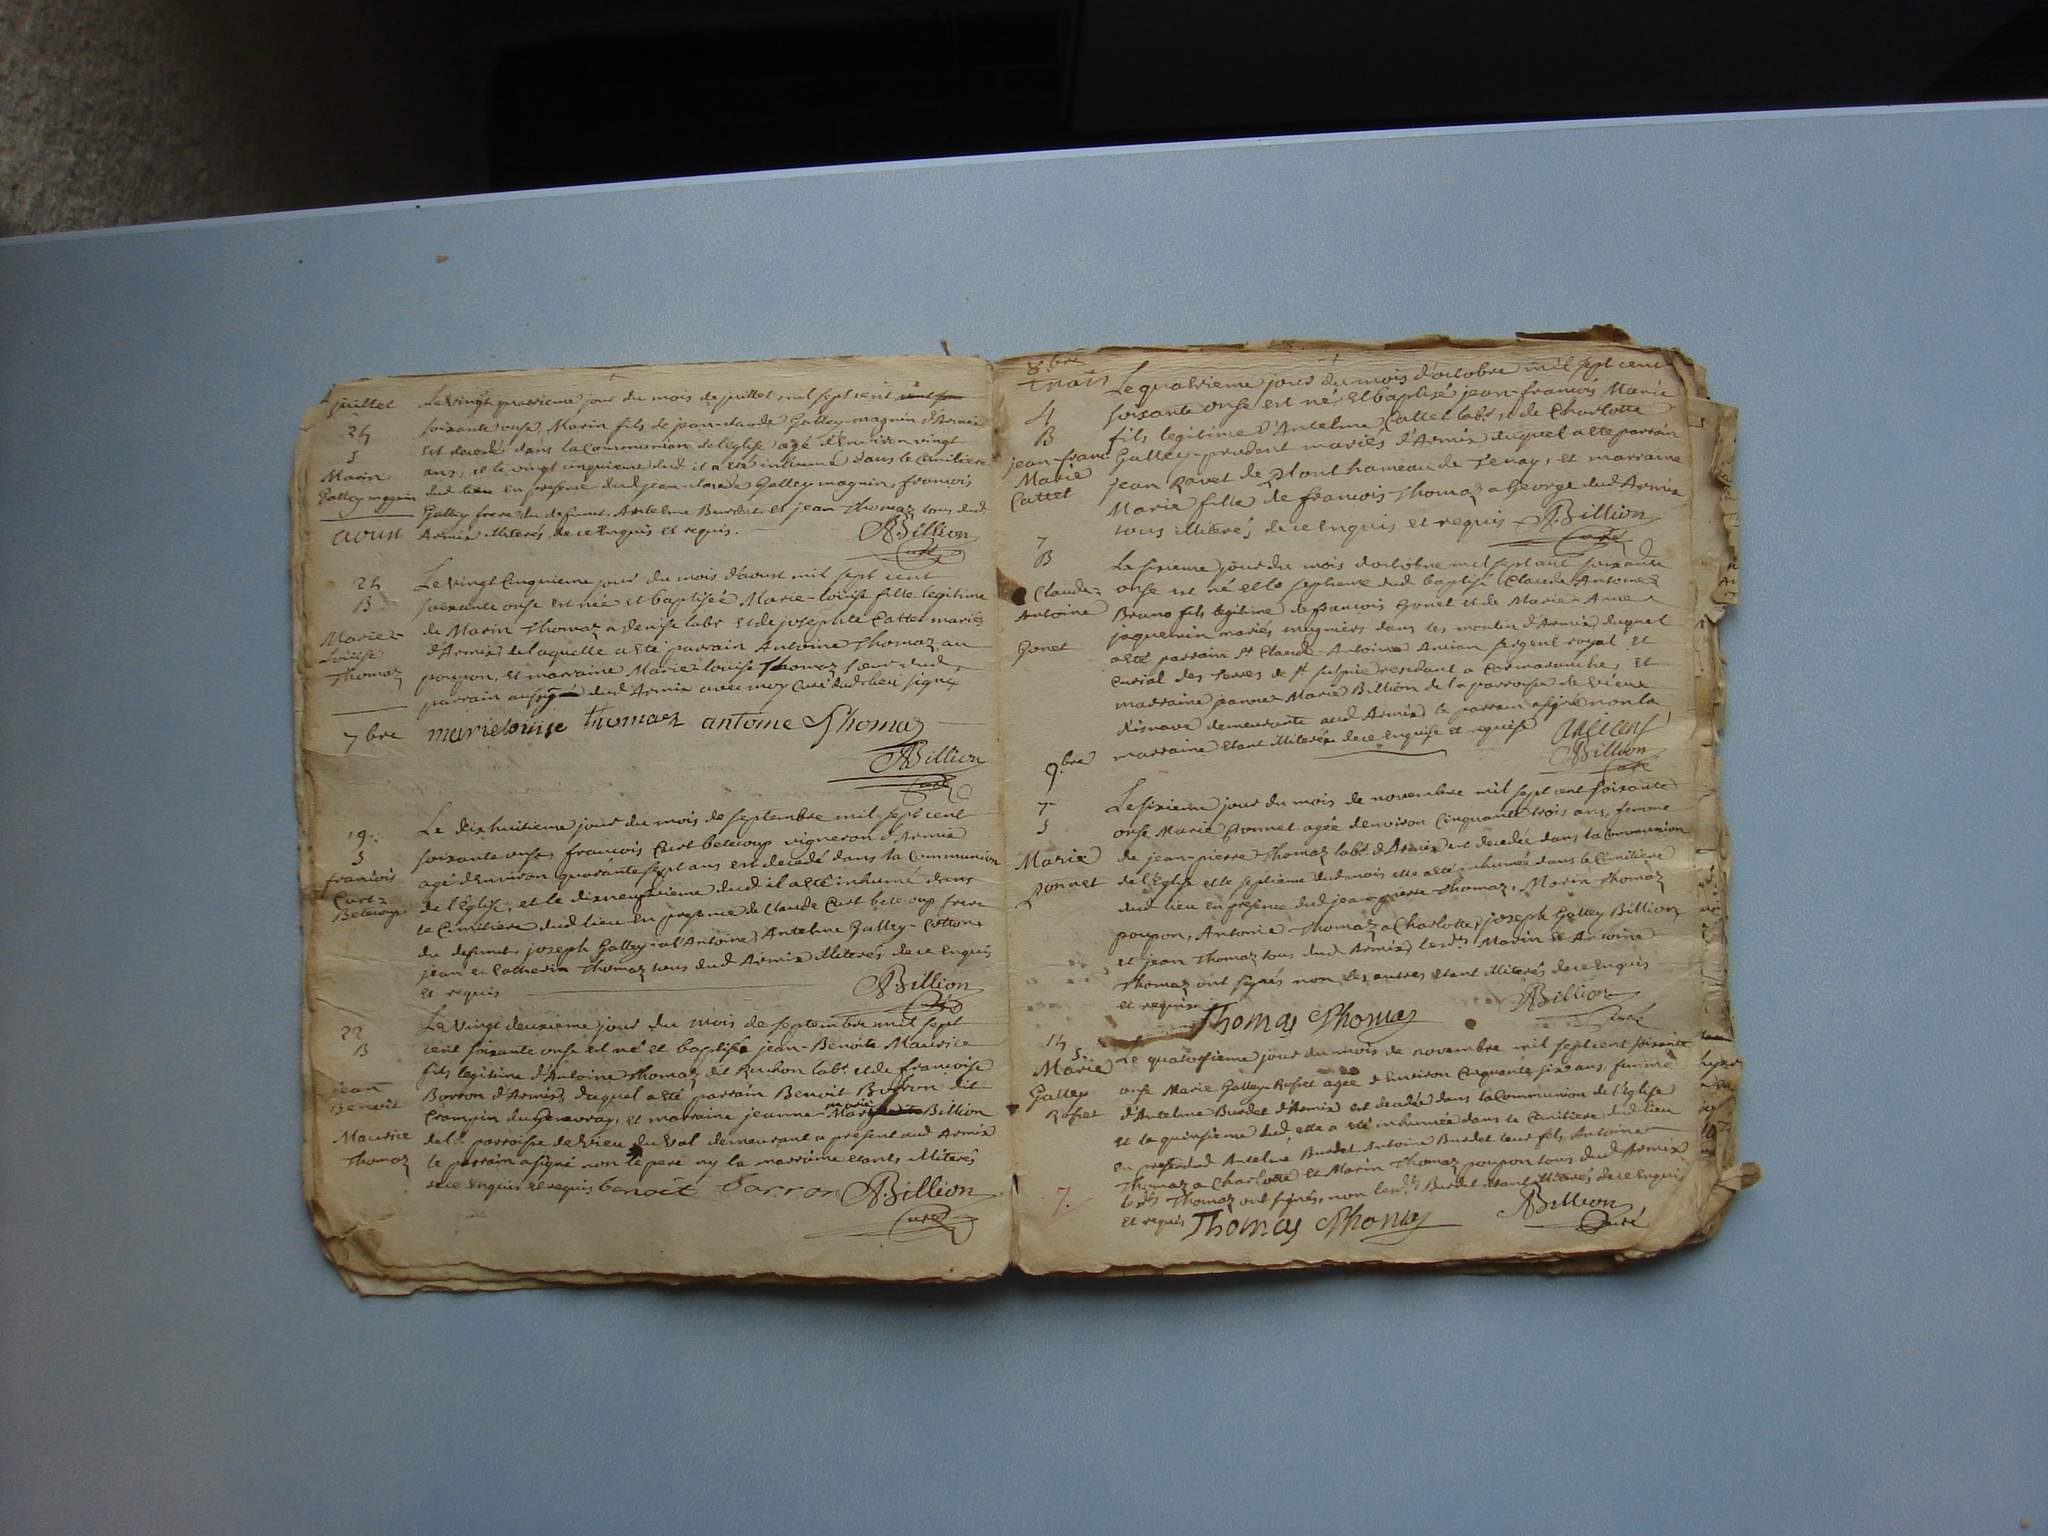 juillet
Le vingt quatrieme jour du mois de juillet mil sept cent
soixante onse, Marin fils de jean-claude Galley-magnin d'Armix
est decedé dans la Communion de l'eglise agé d'Environ vingt
ans, et le vingt cinquieme dud. il a eté inhumé dans le Cimitiere
dud. lieu en presence dud jean-claude Galley magnin, francois
Galley frere du defunt, Antelme Burdet et jean Thomaz tous dud.
Armix illiterés de ce Enquis et requis.
ABillion
Curé
24
S
Marin
Galley magnin
aoust
24
B
Marie-
Louise
Thomaz
Le vingt Cinquieme jour du mois d'aoust mil sept cent
soixante onse est née et baptisée Marie-louise fille legitime
de Marin Thomaz a denise labr et de josephte Cattet mariés
d'Armix de laquelle a eté parrain Antoine Thomaz au
poupon, et marraine Marie-louise Thomaz soeur dud.
parrain dud Armix avec moy Curé dud lieu signé
7bre
marielouise thomaz antoine Thomaz
ABillion
Curé
19
S
francois
Curt-
Betecoup
Le dixhuitieme jour du mois de septembre mil sept cent
soixante onse francois Curt betecoup vigneron d'Armix
agé d'Environ quarante sept ans est decedé dans la Communion
de l'Eglise, et le dixneufvieme dud il a eté inhumé dans
le Cimitiere dud. lieu en presence de Claude Curt betecoup frere
du defunt, joseph Galley-a l'Antoine, Antelme Galley-Cotton
jean a Catherin Thomaz tous dud Armix illiterés de ce Enquis
et requis
ABillion
Curé
22
B
jean
Benoit
Maurice
Thomaz
Le vingt deuxieme jour du mois de septembre mil sept
cent soixante onse est né et baptisé jean-Benoit Maurice
fils legitime d'Antoine Thomaz dit Ruchon labr. et de francoise
Borron d'Armix, duquel a eté parrain Benoit Borron dit
Crampin du Genevray, et marraine jeanne-marie Billion
de la parroisse de vieu du val demeurant a present aud Armix
le parrain a signé non le pere ny la marraine etants illiterés
de ce enquis et requis benoit Barron ABillion
Curé
8.bre
Trais
4
B
jean-franc
Marie
Cattet
Le quatrieme jour du mois d'octobre mil sept cent
soixante onse est né et baptisé jean-francois Marie
fils legitime d'Antelme Cattet labr. et de Charlotte
Galley-prudent mariés d'Armix duquel a eté parrain
jean Ravet de Plout hameau de Tenay, et marraine
Marie fille de francois Thomaz a George dud Armix
tous illiterés de ce enquis et requis ABillion
Curé
7
B
Claude-
Antoine
Gonet
Le sixieme jour du mois d'octobre mil sept cent soixante
onse est né et le septieme dud baptisé Claude Antoine
Bruno fils legitime de francois Gonet et de Marie-Anne
jaquemin mariés mugniers dans les moulin d'Armix duquel
a eté parrain Sr Claude-Antoine Ancian sergent royal et
Curial des terres de St Sulpice residant a Cormaranche, et
marraine jeanne-Marie Billion de la parroisse de vieu
demeurante aud Armix le parrain a signé non la
marraine etant illiterée de ce enquise et requise
ABillion
Curé
9.bre
7
S
Marie
Donnet
Le sixieme jour du mois de novembre mil sept cent soixante
onse Marie Donnet agée d'environ Cinquante trois ans, femme
de jean-pierre Thomaz labr. d'Armix est decedée dans la Communion
de l'Eglise et le septieme dud mois elle a eté inhumée dans le Cimitiere
dud lieu en presence dud jean-pierre Thomaz, Marin Thomaz
poupon, Antoine Thomaz a Charlotte, joseph Galley Billion
et jean Thomaz tous dud Armix, lesds Marin et Antoine
Thomaz ont signés non les autres etant illiterés de ce enquis
et requis
Thomas Thomas
ABillion
Curé
14
S.
Marie
Galley
Rosset
Le quatorsieme jour du mois de novembre mil sept cent soixante
onse Marie Galley-Rosset agée d'Environ Cinquante six ans, femme
d'Antelme Burdet d'Armix est decedée dans la Communion de l'Eglise
et le quinsieme dud elle a eté inhumée dans le Cimitiere dud lieu
en dud Antelme Burdet Antoine Burdet leur fils, Antoine
Thomaz a Charlotte et Marin Thomaz poupon tous dud Armix
lesds Thomaz ont signés, non lesds Burdet etant illiterés de ce Enquis
et requis Thomas Thomas
ABillion
Curé
7.